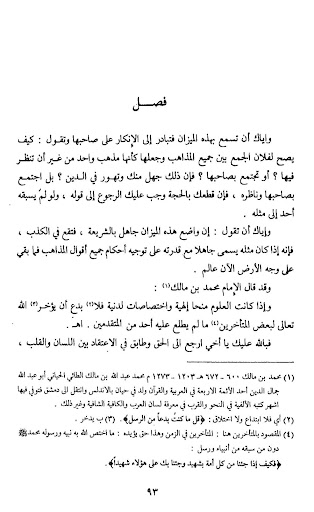 فصــل
وإياك أن تسمع بهذه الميزان فتبادر إلى الإنكار على صاحبها وتقول : كيف
يصح لفلان الجمع بين جميع المذاهب وجعلها كأنها مذهب واحد من غير أن تنظر
فيها ؟ أو تجتمع بصاحبها ؟ فإن ذلك جهل منك وتهور في الدين ؟ بل اجتمع
بصاحبها وناظره ، فإن قطعك بالحجة وجب عليك الرجوع إلى قوله ، ولو لم يسبقه
أحد إلى مثله .
وإياك أن تقول : إن واضع هذه الميزان جاهل بالشريعة ، فتقع في الكذب ،
فإنه إذا كان مثله يسمى جاهلا مع قدرته على توجيه أحكام جميع أقوال المذاهب فما بقي
على وجه الأرض الآن عالم .
وقد قال الإمام محمد بن مالك(١) :
وإذا كانت العلوم منحا إلهية واختصاصات لدنية فلا(٢) بدع أن يؤخر(٣) الله
تعالى لبعض المتأخرين(٤) ما لم يطلع عليه أحد من المتقدمين . اهـ .
فبالله عليك يا أخي ارجع الى الحق وطابق في الاعتقاد بين اللسان والقلب ،
(١) محمد بن مالك ٦٠٠ - ٦٧٢ هـ ١٢٠٣ - ١٢٧٣ م محمد عبد الله بن مالك الطائي الجياني أبو عبد الله
جمال الدين أحد الأئمة الاربعة في العربية والقرآن ولد في جيان بالأندلس وانتقل الى دمشق فتوفي فيها
اشهر كتبه الألفية في النحو والقرب في معرفة لسان العرب والكافية الشافية وغير ذلك .
(٢) أي فلا ابتداع ولا اختلاق : ﴿قل ما كنت بدعاً من الرسل﴾ . (٣) ب يدخر .
(٤) المقصود بالمتأخرين هنا : المتأخرين في الزمن وهذا حق يؤيده : ما اختص الله به نبيه ورسوله محمد ﷺ
دون من سبقه من أنبياء ورسل :
﴿فكيف إذا جئنا من كل أمة بشهيد وجئنا بك على هؤلاء شهيداً﴾ .
٩٣